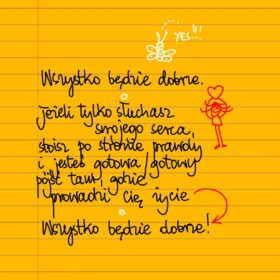 YES!!!
Wszystko będzie dobrze.
jeżeli tylko słuchasz
swojego serca,
stoisz po stronie prawdy
i jesteś gotowa/gotowy
pójść tam, gdzie
prowadzi Cię życie
Wszystko będzie dobrze!